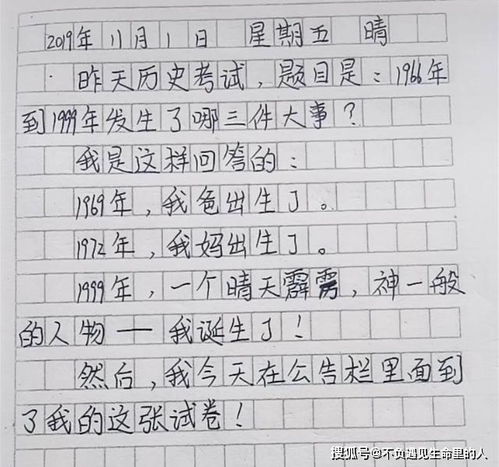 2019年11月1日 星期五 晴
昨天历史考试，题目是：1966年
到1999年发生了哪三件大事？
我是这样回答的：
1969年，我爸出生了。
1972年，我妈出生了。
1999年，一个晴天霹雳，神一般
的人物——我诞生了！
然后，我今天在公告栏里面到
了我的这张试卷！
搜狐号@不负遇见生命里的人